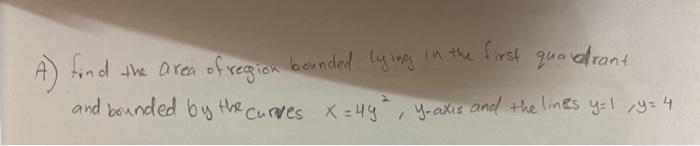 A) find the area of region bounded lying in the first quardrant
and bounded by the curves x = 4y², y-axis and the lines y=1, y=4